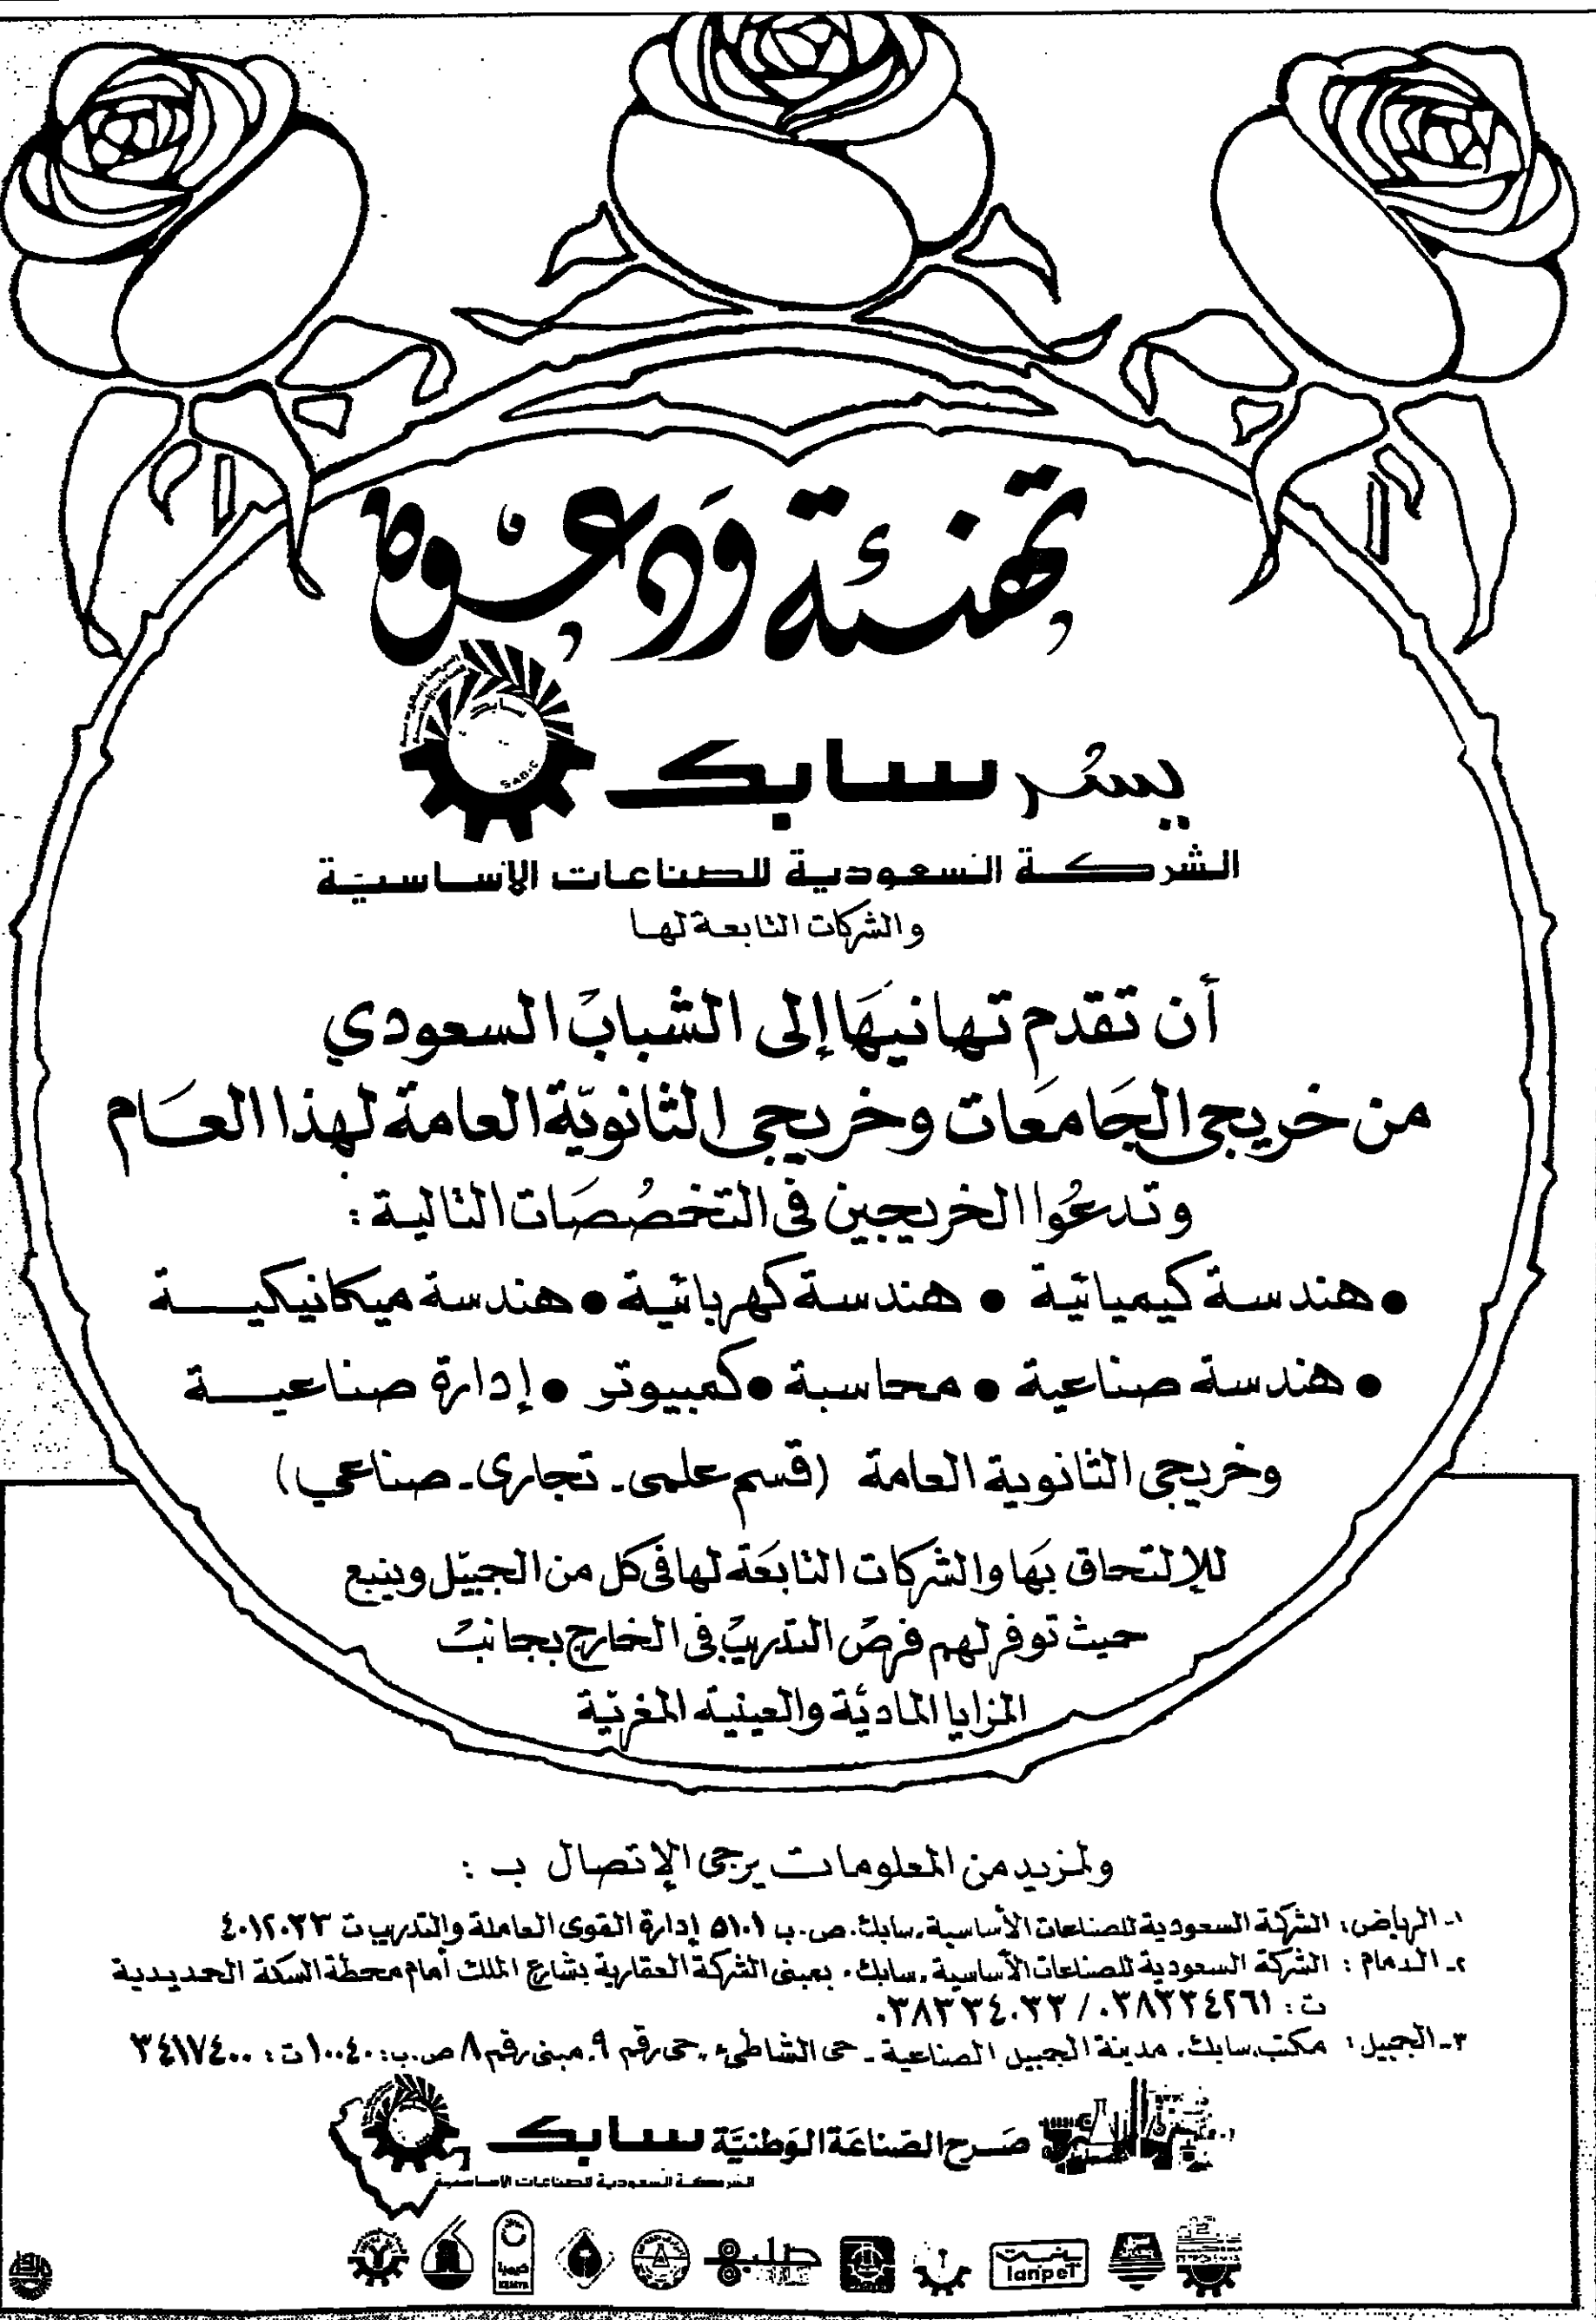 تهنئة ودعوة
يسر سابك
الشركة السعودية للصناعات الاساسية
والشركات التابعة لها
أن تقدم تهانيها إلى الشباب السعودي
من خريجي الجامعات وخريجي الثانوية العامة لهذا العام
وتدعوا الخريجين في التخصصات التالية :
● هندسة كيميائية ● هندسة كهربائية ● هندسة ميكانيكية
● هندسة صناعية ● محاسبة ● كمبيوتر ● إدارة صناعية
وخريجي الثانوية العامة (قسم علمي - تجاري - صناعي)
للإلتحاق بها والشركات التابعة لها في كل من الجبيل وينبع
حيث توفر لهم فرص التدريب في الخارج بجانب
المزايا المادية والعينية المغرية
ولمزيد من المعلومات يرجى الإتصال ب :
١- الرياض: الشركة السعودية للصناعات الأساسية، سابك. ص. ب ٥١٠١ إدارة القوى العاملة والتدريب ت ٤٠١٢٠٣٣
٢- الدمام : الشركة السعودية للصناعات الأساسية، سابك، بمبنى الشركة العقارية بشارع الملك أمام محطة السكة الحديدية
ت : ٠٣٨٣٣٤٢٦١ / ٠٣٨٣٣٤٠٣٣
٣- الجبيل: مكتب سابك، مدينة الجبيل الصناعية - حي الشاطيء، حي رقم ٩، مبنى رقم ٨ ص.ب: ١٠٠٤٠ ت : ٣٤١٧٤٠٠
صرح الصناعة الوطنية سابك
الشركة السعودية للصناعات الاساسية
ينبت
Ianpet